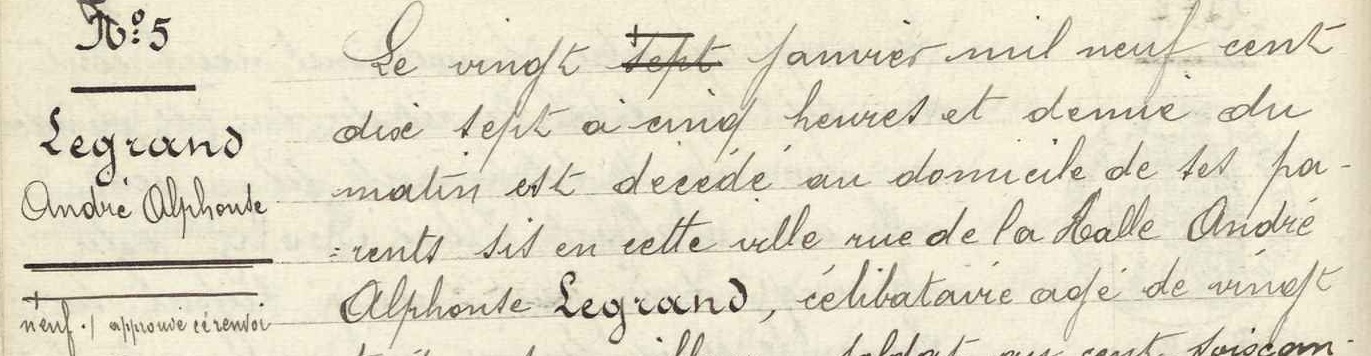 N° 5
Legrand
André Alphonse
neuf ./ approuvé ce renvoi
Le vingt sept janvier mil neuf cent
dix sept à cinq heures et demie du
matin est décédé au domicile de ses pa-
=rents sis en cette ville rue de la Halle André
Alphonse Legrand, célibataire agé de vingt
soldat au cent soixan-